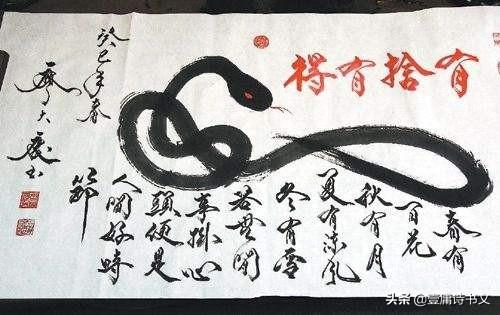 有捨有得
春有
百花
秋有月
夏有凉风
冬有雪
若無閒
事掛心
頭便是
人間好時
節
癸巳年春
头条 @壹庸诗书文